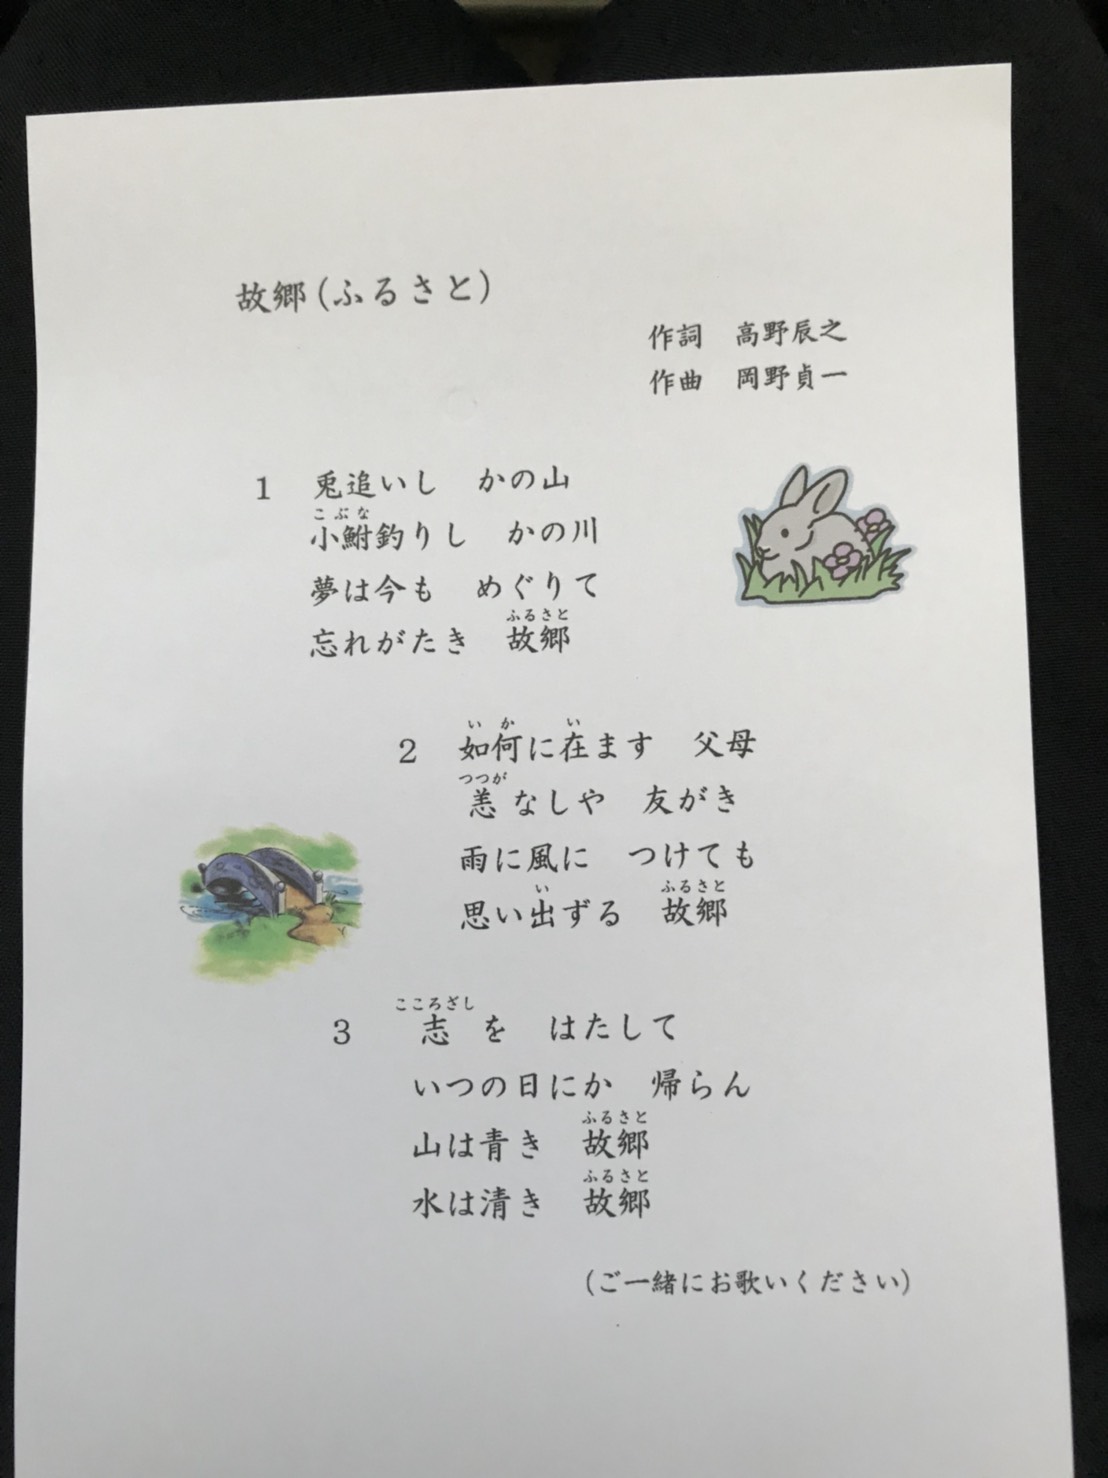 故郷(ふるさと)
作詞　高野辰之
作曲　岡野貞一
1　兎追いし　かの山
こぶな
小鮒釣りし　かの川
夢は今も　めぐりて
ふるさと
忘れがたき　故郷
いか　い
2　如何に在ます　父母
つつが
恙なしや　友がき
雨に風に　つけても
い　ふるさと
思い出ずる　故郷
こころざし
3　志を　はたして
いつの日にか　帰らん
ふるさと
山は青き　故郷
ふるさと
水は清き　故郷
(ご一緒にお歌いください)